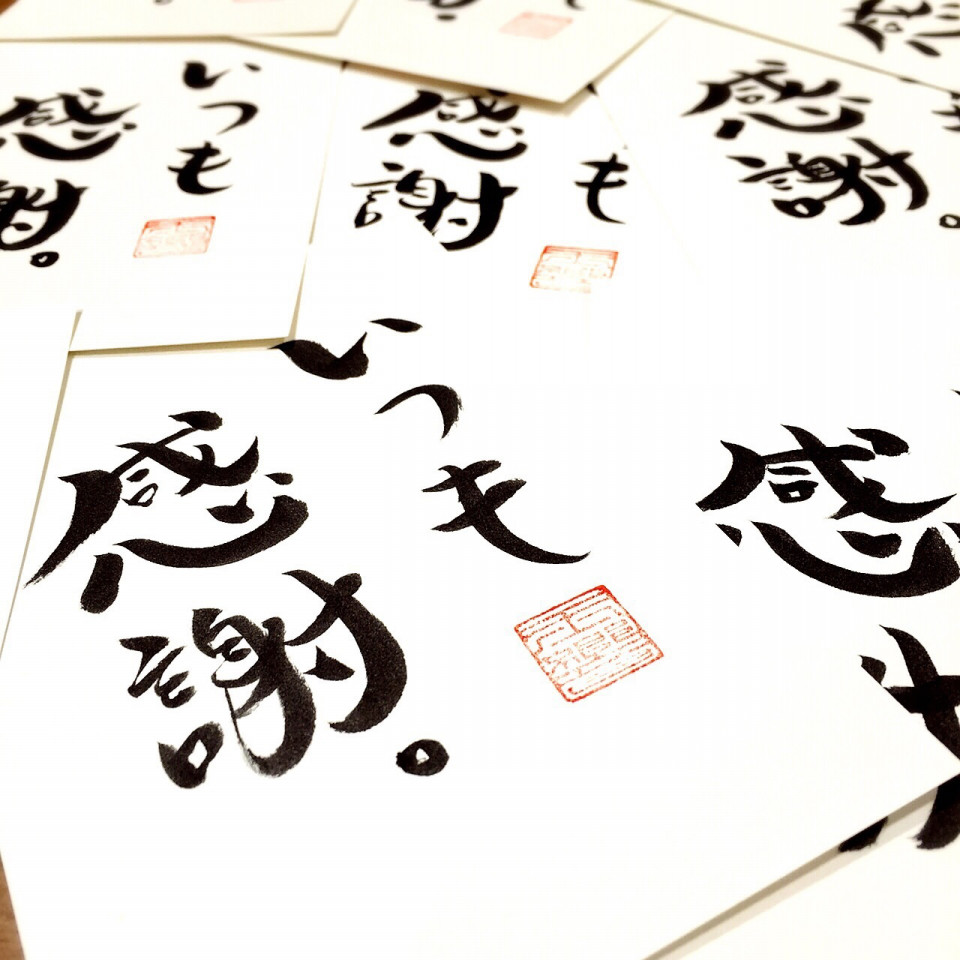 いつも
感謝。
いつも
感謝。
いつも
感謝
感謝。
感